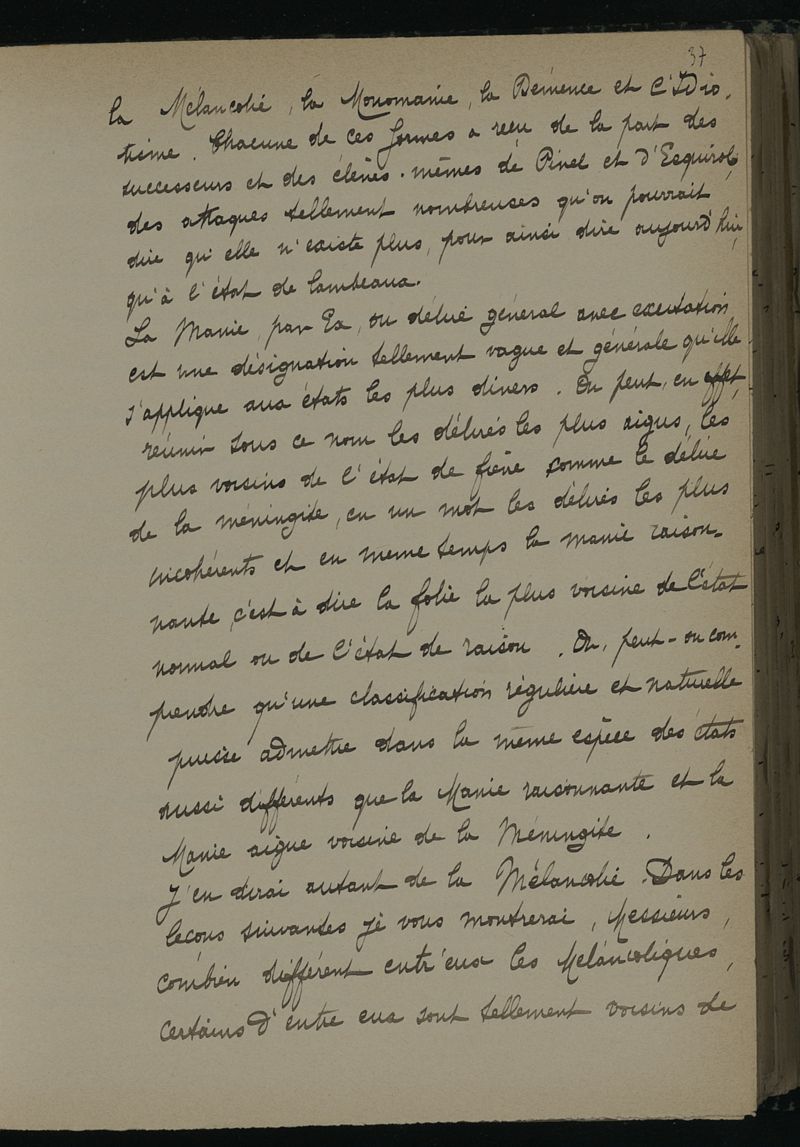 37
la Mélancolie, la Monomanie, la Démence et l'Idio-
tisme. Chacune de ces formes a reçu de la part des
successeurs et des élèves-mêmes de Pinel et d'Esquirol,
des attaques tellement nombreuses qu'on pourrait
dire qu'elle n'existe plus, pour ainsi dire aujourd'hui,
qu'à l'état de lambeaux.
La Manie, par Ex, ou délire général avec excitation
est une désignation tellement vague et générale qu'elle
s'applique aux états les plus divers. On peut, en effet,
réunir sous ce nom les délires les plus aigus, les
plus voisins de l'état de fièvre comme le délire
de la méningite, en un mot les délires les plus
incohérents et en meme temps la manie raison-
nante c'est à dire la folie la plus voisine de l'état
normal ou de l'état de raison. Or, peut-on com-
prendre qu'une classification régulière et naturelle
puisse admettre dans la même espèce des états
aussi différents que la Manie raisonnante et la
Manie aigue voisine de la Méningite.
J'en dirai autant de la Mélancolie. Dans les
leçons suivantes je vous montrerai, Messieurs,
combien différent entr'eux les Mélancoliques,
certains d'entre eux sont tellement voisins de